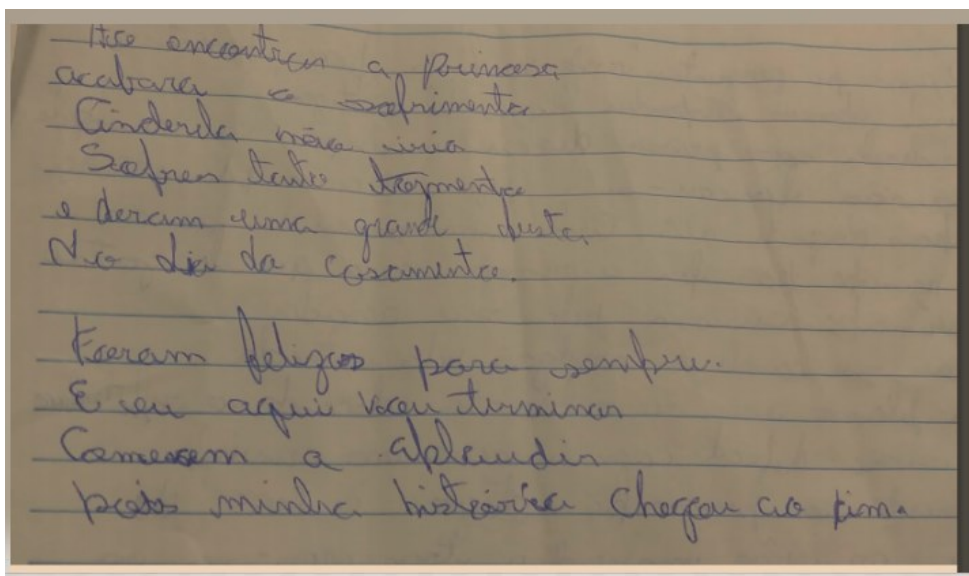 Ao encontrar a princesa
acabara o sofrimento
Cinderela não iria
Sofrer tanto tormento
e deram uma grande festa
No dia do casamento.
Foram felizes para sempre.
E eu aqui vou terminar
Comessem a aplaudir
pois minha história chegou ao fim.